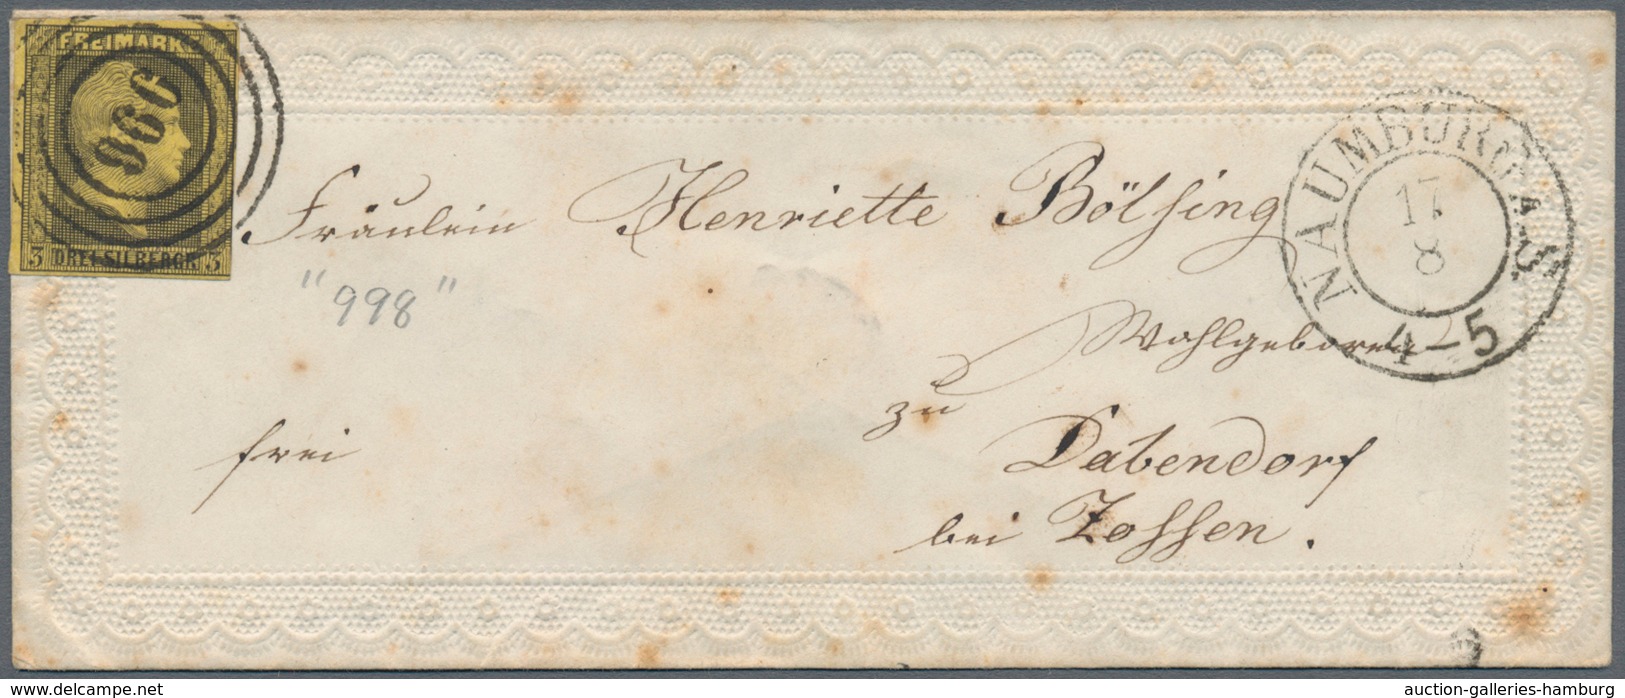 FREIMARKE
996
3 DREI SILBERGR. 3
Fräulein Henriette Bölsing
"998"
Wohlgeboren
zu
frei
Dabendorf
bei Zossen.
NAUMBURG A/S.
17
8
4-5
www.delcampe.net
auction-galleries-hamburg